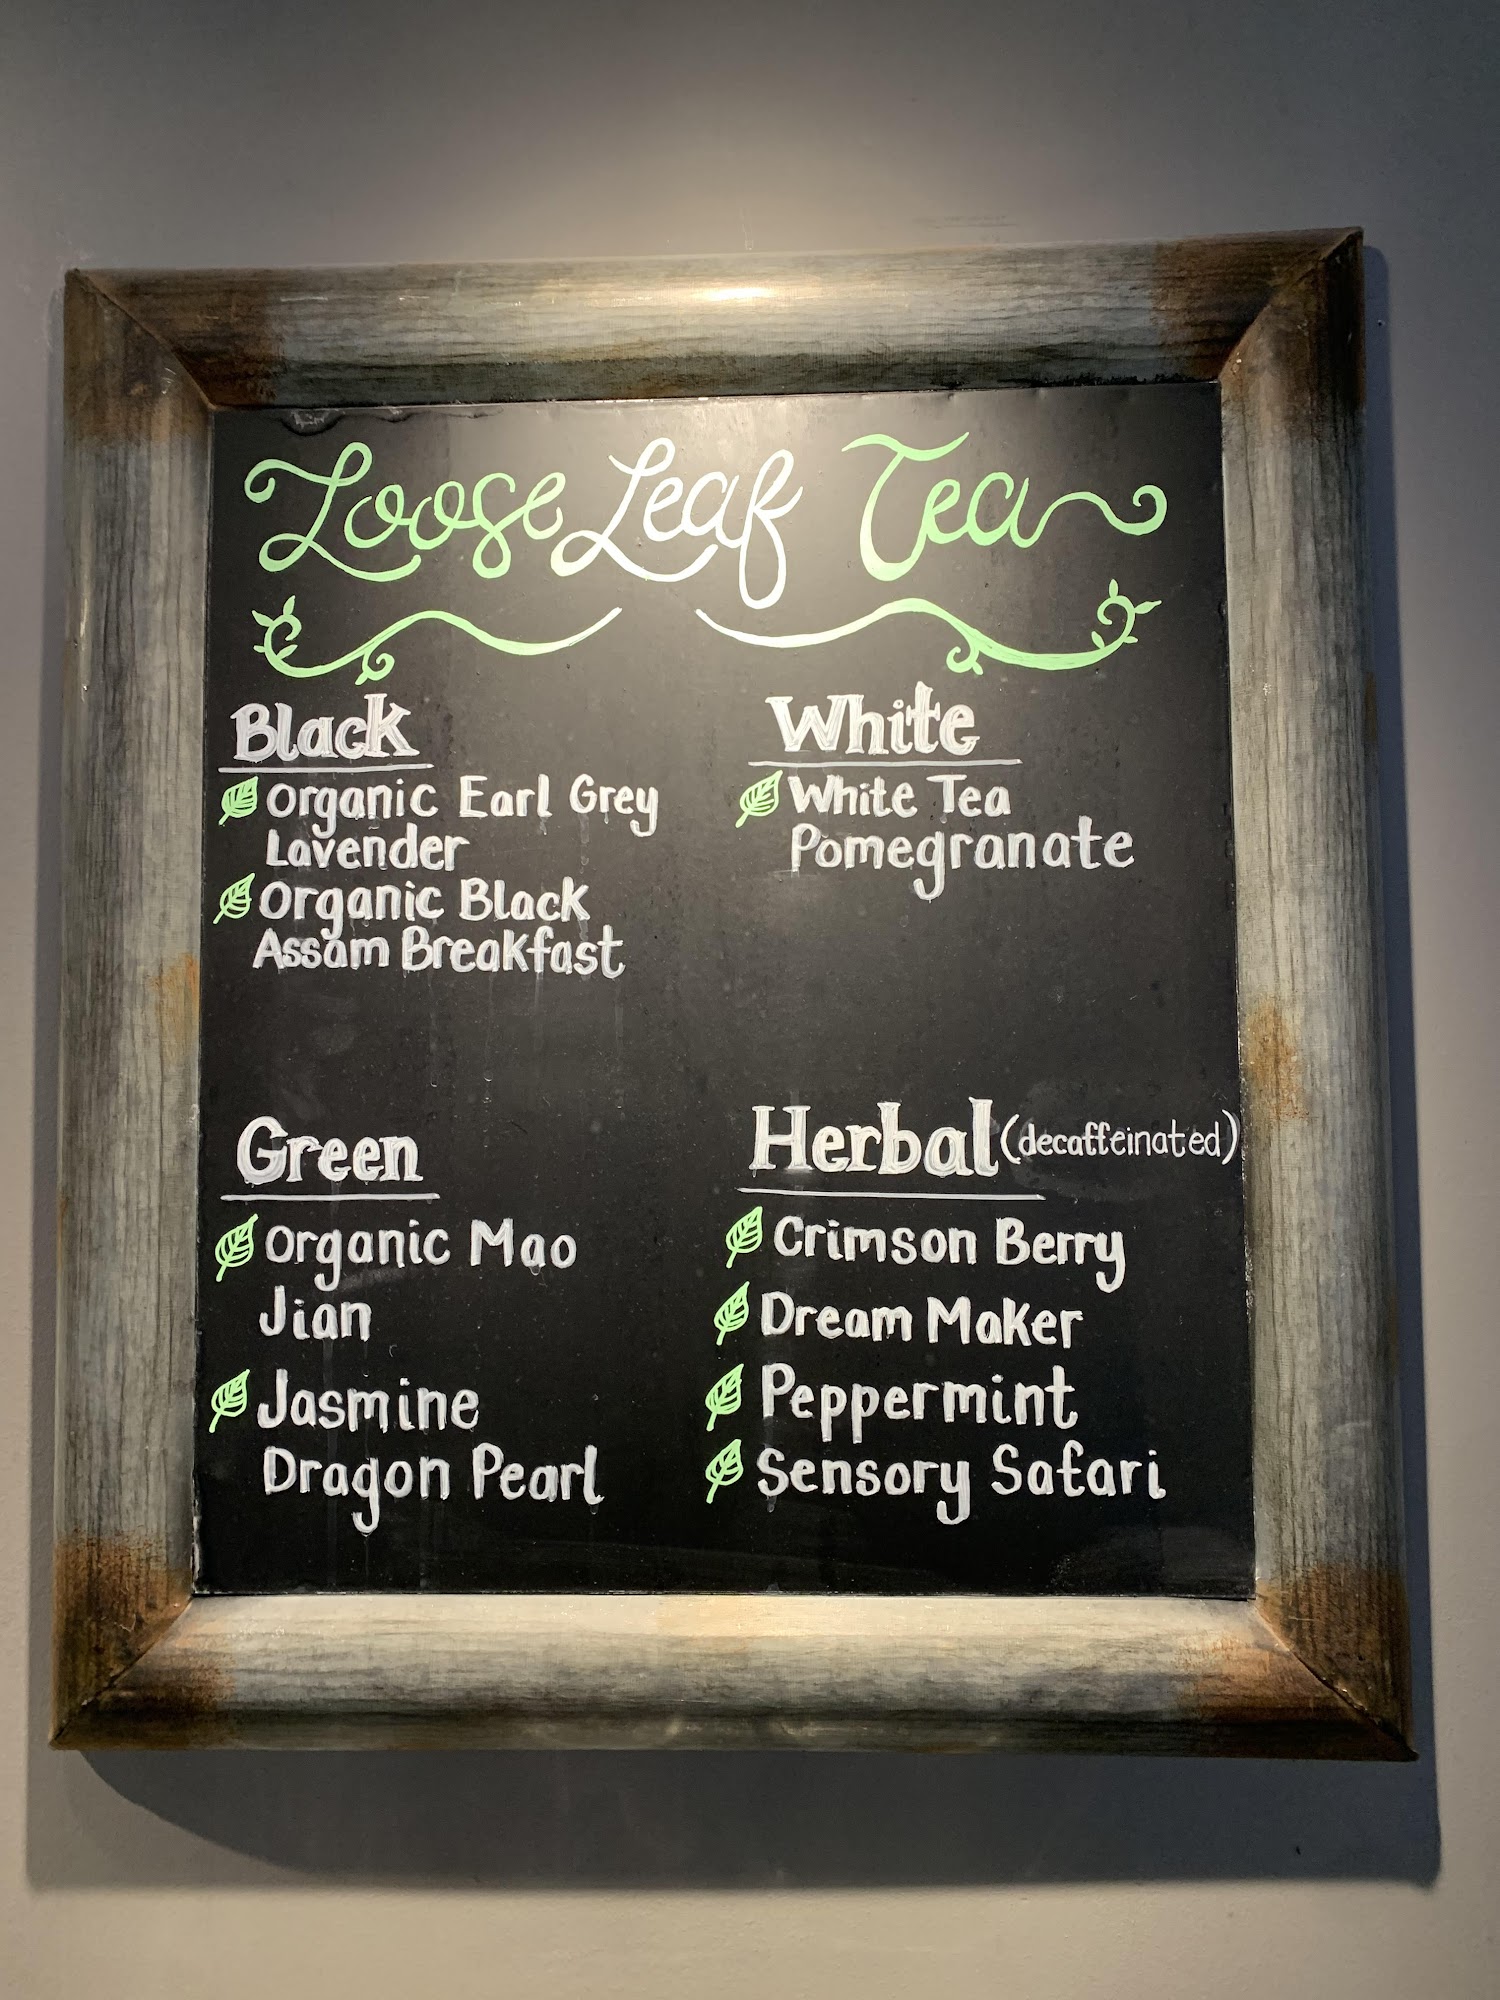 Loose Leaf Tea
Black
Organic Earl Grey
Lavender
Organic Black
Assam Breakfast
White
White Tea
Pomegranate
Green
Organic Mao
Jian
Jasmine
Dragon Pearl
Herbal (decaffeinated)
Crimson Berry
Dream Maker
Peppermint
Sensory Safari